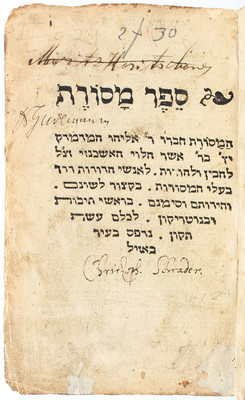 30
Moritz
ספר מסורת
המסורת חברו ר' אליהו המדקדק
יץ' בר' אשר הלוי האשכנזי
להבין ולהורות . לאנשי
בעלי המסורות . בקצור לשונם .
וחידותם וסימנם . בראשי תיבות
ובנוטריקון . לכלם עשה
תקון . נדפס בעיר
באזיל
Christoph. Schrader.